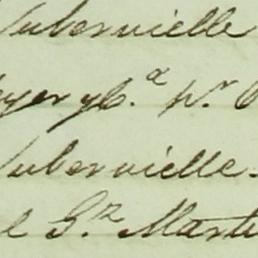 Subervielle
yer y C.ª p.r
Subervielle.
l G.z Marti